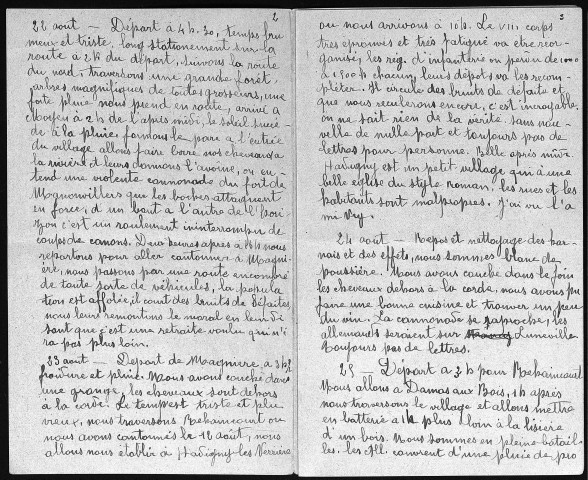 2
22 août — Départ à 4h.30, temps bru
meux et triste, long stationnement sur la
route à 2k du départ, suivons la route
du nord, traversons une grande forêt,
arbres magnifiques de toutes grosseurs, une
forte pluie nous prend en route, arrivé à
Moyen à 2h de l'après midi, le soleil succè-
de à la pluie formons le parc à l'entrée
du village allons faire boire nos chevaux à
la rivière et leurs donnons l'avoine, on en-
tend une violente canonnade du fort de
Magnonvillers que les boches attaquent
en force, d'un bout à l'autre de l'hori-
zon c'est un roulement ininterrompu de
coups de canons. Deux heures après à 4h nous
repartons pour aller cantonner à Magni-
ère, nous passons par une route encombré
de toute sorte de véhicules, la popula
tion est affolée, il court des bruits de défaites,
nous leur remontons le moral en leur di
sant que c'est une retraite voulu qui n'i
ra pas plus loin.
23 août — Départ de Magnière à 3h½
froidure et pluie. Nous avons couché dans
une grange, les chevaux sont dehors
à la corde. Le temps est triste et plu
vieux, nous traversons Rehaincourt ou
nous avons cantonnés le 12 août, nous
allons nous établir à Hadigny les Verrières
3
ou nous arrivons à 10h. Le VIII. corps
très éprouvés et très fatigué va être reor-
ganisé, les rég. d'infanterie on perdu de 1000
à 1500 h chacun, leurs dépots va les recom-
pléter. Il circule des bruits de défaite et
que nous reculerons encore, c'est incroyable,
on ne sait rien de la vérité. sans nou-
velle de nulle part et toujours pas de
lettres pour personne. Belle après midi.
Hadigny est un petit village qui à une
belle église du style roman, les rues et les
habitants sont malpropres. J'ai vu l'a
mi Rey.
24 août — Repos et nettoyage des har-
nais et des effets, nous sommes blanc de
poussière. Nous avons couché dans le foin
les chevaux dehors à la corde, nous avons pu
faire une bonne cuisine et trouver un peu
du vin. La canonnade se rapproche, les
allemands seraient sur Luneville
Toujours pas de lettres.
25 — Départ à 3h pour Rehaincourt
Nous allons à Damas aux Bois, 1h après
nous traversons le village et allons mettre
en batterie à 1k plus loin à la lisière
d'un bois. Nous sommes en pleine batail-
les. les All. couvrent d'une pluie de pro